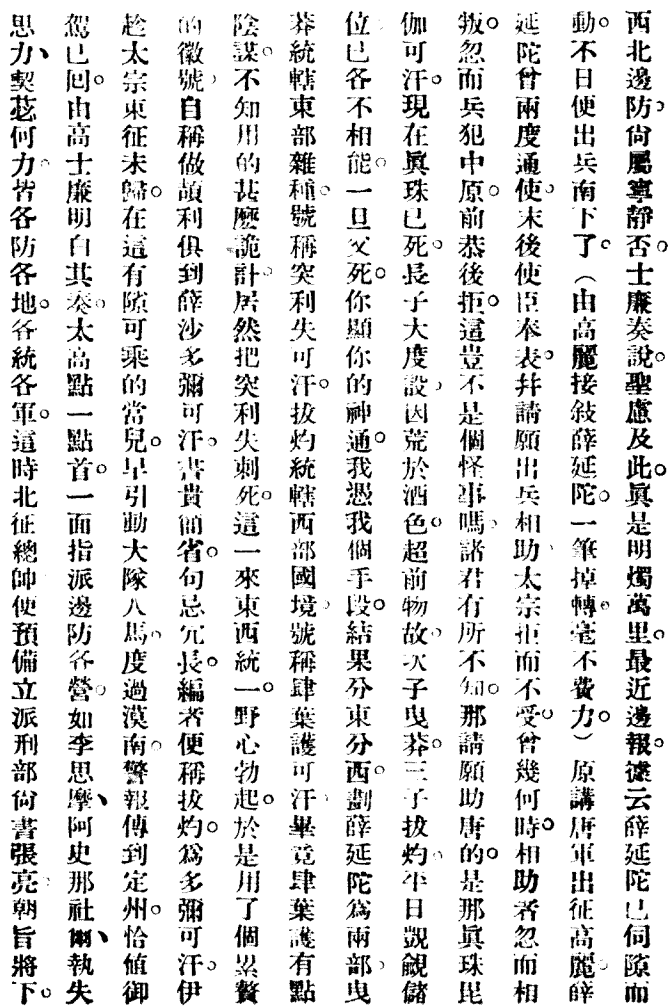 西北邊防尙屬寧靜否士廉奏說聖慮及此眞是明燭萬里最近邊報據云薛延陀已伺隙而
動不日便出兵南下了（由高麗接敍薛延陀一筆掉轉毫不費力）原講唐軍出征高麗薛
延陀曾兩度通使末後使臣奉表幷請願出兵相助太宗拒而不受曾幾何時相助者忽而相
叛忽而兵犯中原前恭後拒這豈不是個怪事嗎諸君有所不知那請願助唐的是那眞珠毘
伽可汗現在眞珠已死長子大度設因荒於酒色超前物故次子曳莽三子拔灼平日覬覦儲
位已各不相能一旦父死你顯你的神通我憑我個手段結果分東分西劃薛延陀爲兩部曳
莽統轄東部雜種號稱突利失可汗拔灼統轄西部國境號稱肆葉護可汗畢竟肆葉護有點
陰謀不知用的甚麼詭計居然把突利失刺死這一來東西統一野心勃起於是用了個累贅
的徽號自稱做頡利俱到薛沙多彌可汗書貴簡省句忌冗長編者便稱拔灼爲多彌可汗伊
趁太宗東征未歸在這有隙可乘的當兒早引動大隊人馬度過漠南警報傳到定州恰値御
駕已回由高士廉明白其奏太高點一點首一面指派邊防各營如李思摩阿史那社爾執失
思力契苾何力皆各防各地各統各軍這時北征總帥便預備立派刑部尙書張亮朝旨將下